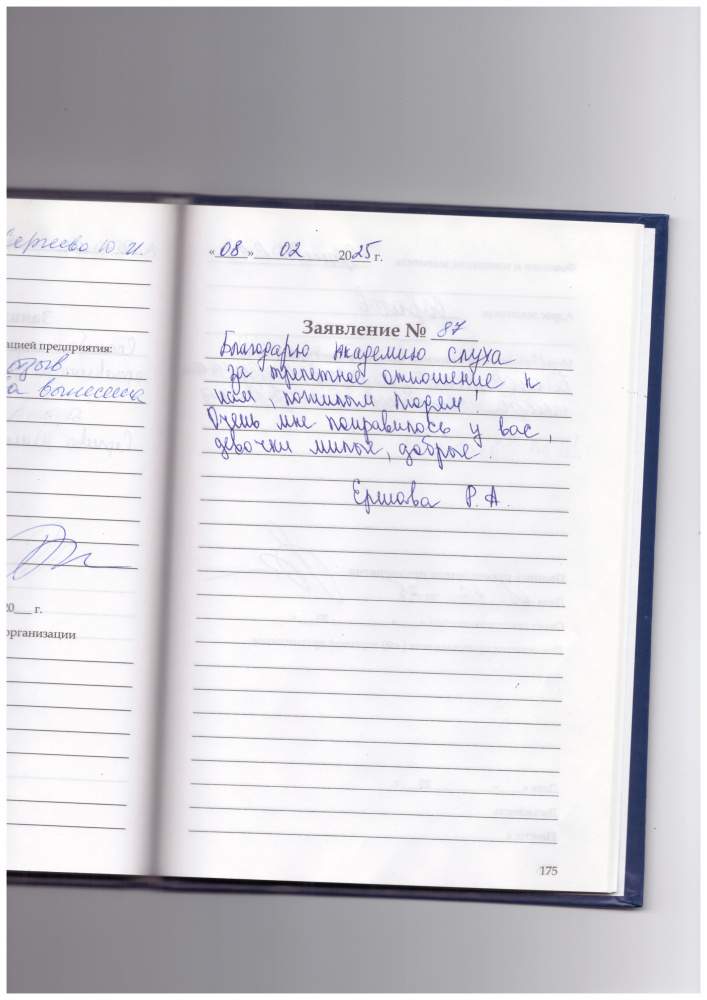 Сергеева Ю.И.
ацией предприятия:
отзыв
а вынесена
20___ г.
организации
«08» 02 2025 г.
Заявление № 87
Благодарю Академию слуха
за трепетное отношение к
нам, пожилым людям!
Очень мне понравилось у вас,
девочки милые, добрые.
Ершова Р.А.
175